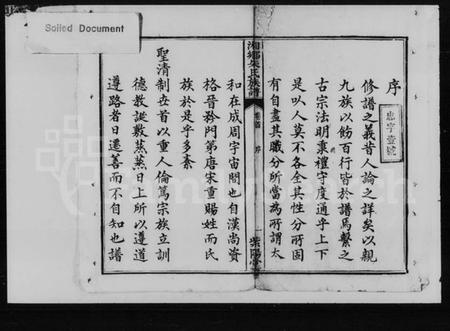 Soiled Document
序
忠字壹號
修譜之義昔人論之詳矣以親
九族以飭百行皆於譜焉繫之
古宗法明秉禮守度通乎上下
是以人莫不各全其性分所固
有自盡其職分所當為所謂太
湘鄉朱氏族譜
序
紫陽堂
和在成周宇宙間也自漢尚資
格晉矜門第唐宋重賜姓而氏
族於是乎多紊
聖清制世首以重人倫篤宗族立訓
德教誕敷蒸蒸日上所以遵道
遵路者日遷善而不自知也譜